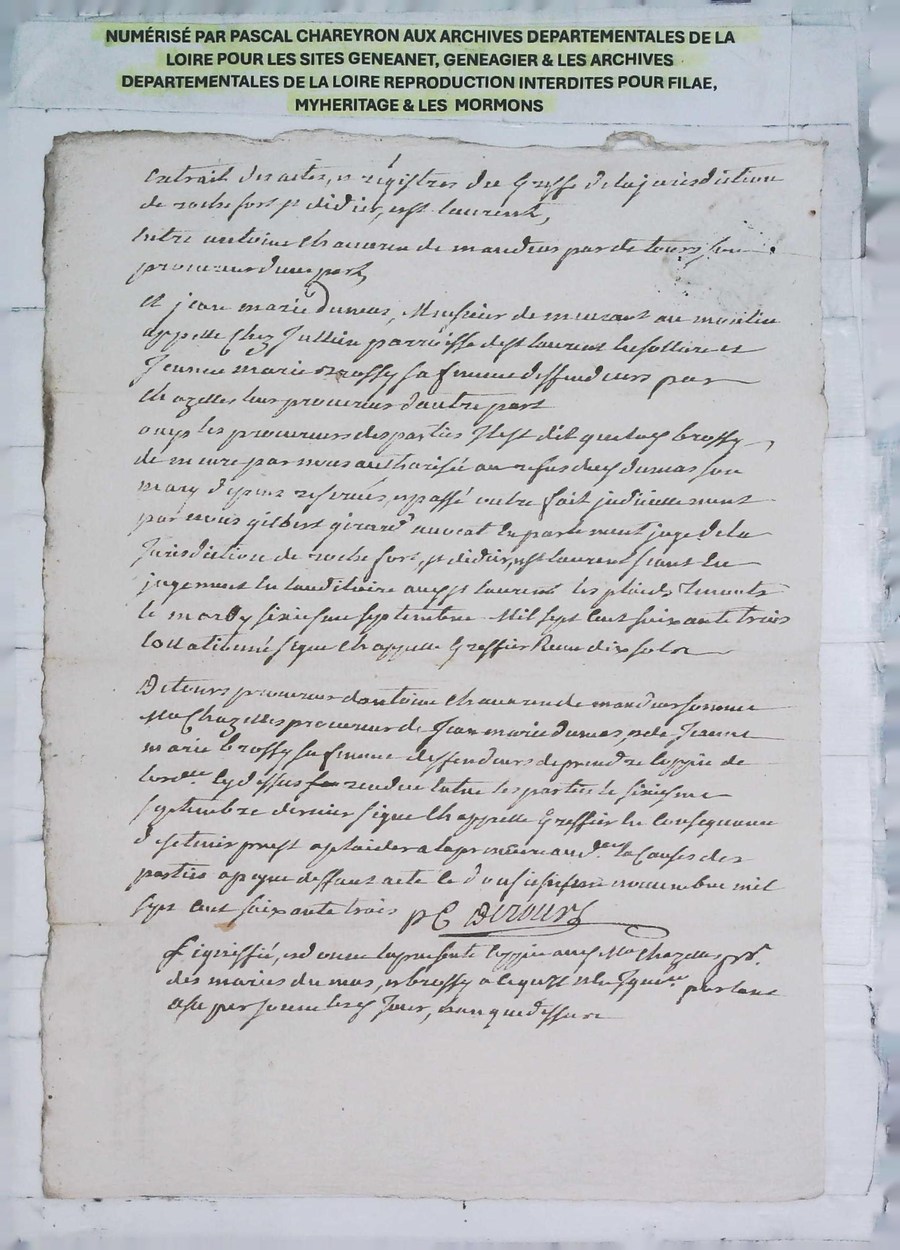 NUMÉRISÉ PAR PASCAL CHAREYRON AUX ARCHIVES DEPARTEMENTALES DE LA
LOIRE POUR LES SITES GENEANET, GENEAGIER & LES ARCHIVES
DEPARTEMENTALES DE LA LOIRE REPRODUCTION INTERDITES POUR FILAE,
MYHERITAGE & LES MORMONS
extrait des actes, et régistres du Greffe de la jurisdiction
de rochefort st didier, et st laurent,
Entre antoine Chaveren de par detours, son
procureur d'une part,
Et jean marie Dumas, Meusnier demeurant au moulin
appellé Chez Jullien parroisse de st laurent et
Jeanne marie Brossy sa femme deffendeurs par
Chazelles leur procureur d'autre part
ouys les procureurs des parties Il est dit que lad. brossy
demeure par nous authorisée au refus dud. dumas son
mary depens reservés, et passé outre fait judiciellement
par nous gilbert girard avocat en parlement juge de la
Jurisdiction de rochefort, st didier, et st laurent seant en
jugement en l'auditoire aud. st laurent les plaids tenants
le mardy sixiesme septembre Mil sept cent soixante trois
signé Chappelle Greffier Reçu dix sols
Detours procureur d'antoine Chaveren de somme
Me Chazelles procureur de Jean marie dumas, et de Jeanne
marie brossy sa femme deffendeurs de prendre coppie de
l'ordce cy dessus rendue entre les parties le sixiesme
septembre dernier signé Chappelle Greffier en consequance
de se tenir prest a plaider a la premiere audce la Cause des
parties a peyne deffaut acte le novembre mil
sept cent soixante trois Detours
signiffié, et donné la presente coppie aud. Me Chazelles pr.
des mariés dumas, et brossy a ce qu'il n'en parlant
a sa personne led. Jour, et an que dessus